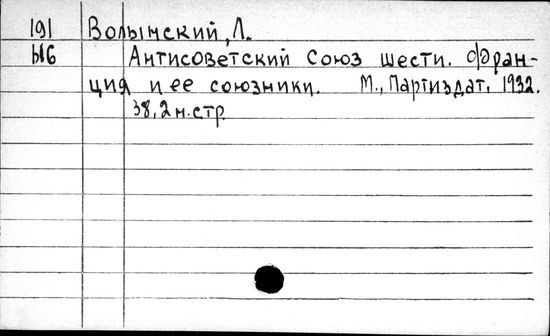 191 Волынский, Л.
Ы16 Антисоветский Союз шести. Фран-
ция и ее союзники. М., Партиздат, 1932.
38, 2 н. стр.